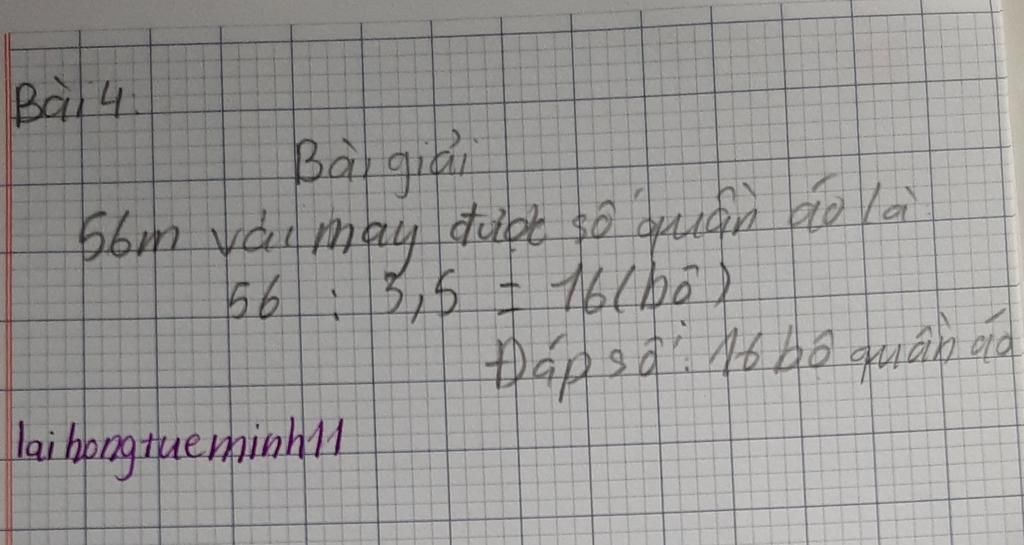 Bài 4.
Bài giải
56m vải may được số quần áo là
56 : 3,5 = 16 (bộ)
Đáp số: 16 bộ quần áo
laihongtueminh11